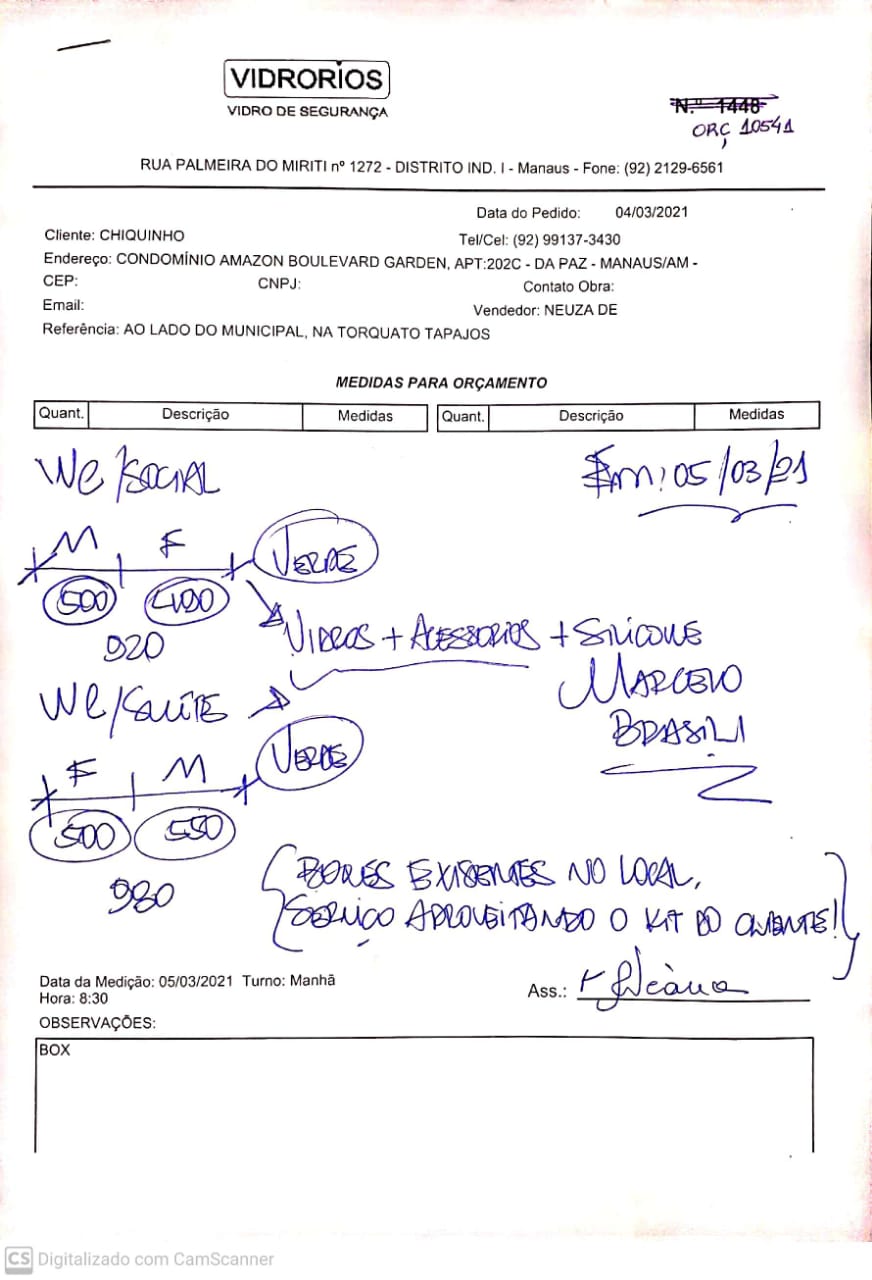 VIDRORIOS
VIDRO DE SEGURANÇA
N.º 1448
ORÇ 10541
RUA PALMEIRA DO MIRITI nº 1272 - DISTRITO IND. I - Manaus - Fone: (92) 2129-6561
Data do Pedido: 04/03/2021
Cliente: CHIQUINHO
Tel/Cel: (92) 99137-3430
Endereço: CONDOMÍNIO AMAZON BOULEVARD GARDEN, APT:202C - DA PAZ - MANAUS/AM -
CEP: CNPJ: Contato Obra:
Email: Vendedor: NEUZA DE
Referência: AO LADO DO MUNICIPAL, NA TORQUATO TAPAJOS
MEDIDAS PARA ORÇAMENTO
Quant. Descrição Medidas Quant. Descrição Medidas
WC/SOCIAL
Em: 05/03/21
M F VERDE
500 400
920
VIDROS + ACESSORIOS + SILICONE
MARCELO
BRASIL
WC/SUÍTE
F M VERDE
500 550
980
BOXES EXISTENTES NO LOCAL,
SERVIÇO APROVEITANDO O KIT DO CLIENTE!
Data da Medição: 05/03/2021 Turno: Manhã
Hora: 8:30
Ass.:
OBSERVAÇÕES:
BOX
CS Digitalizado com CamScanner